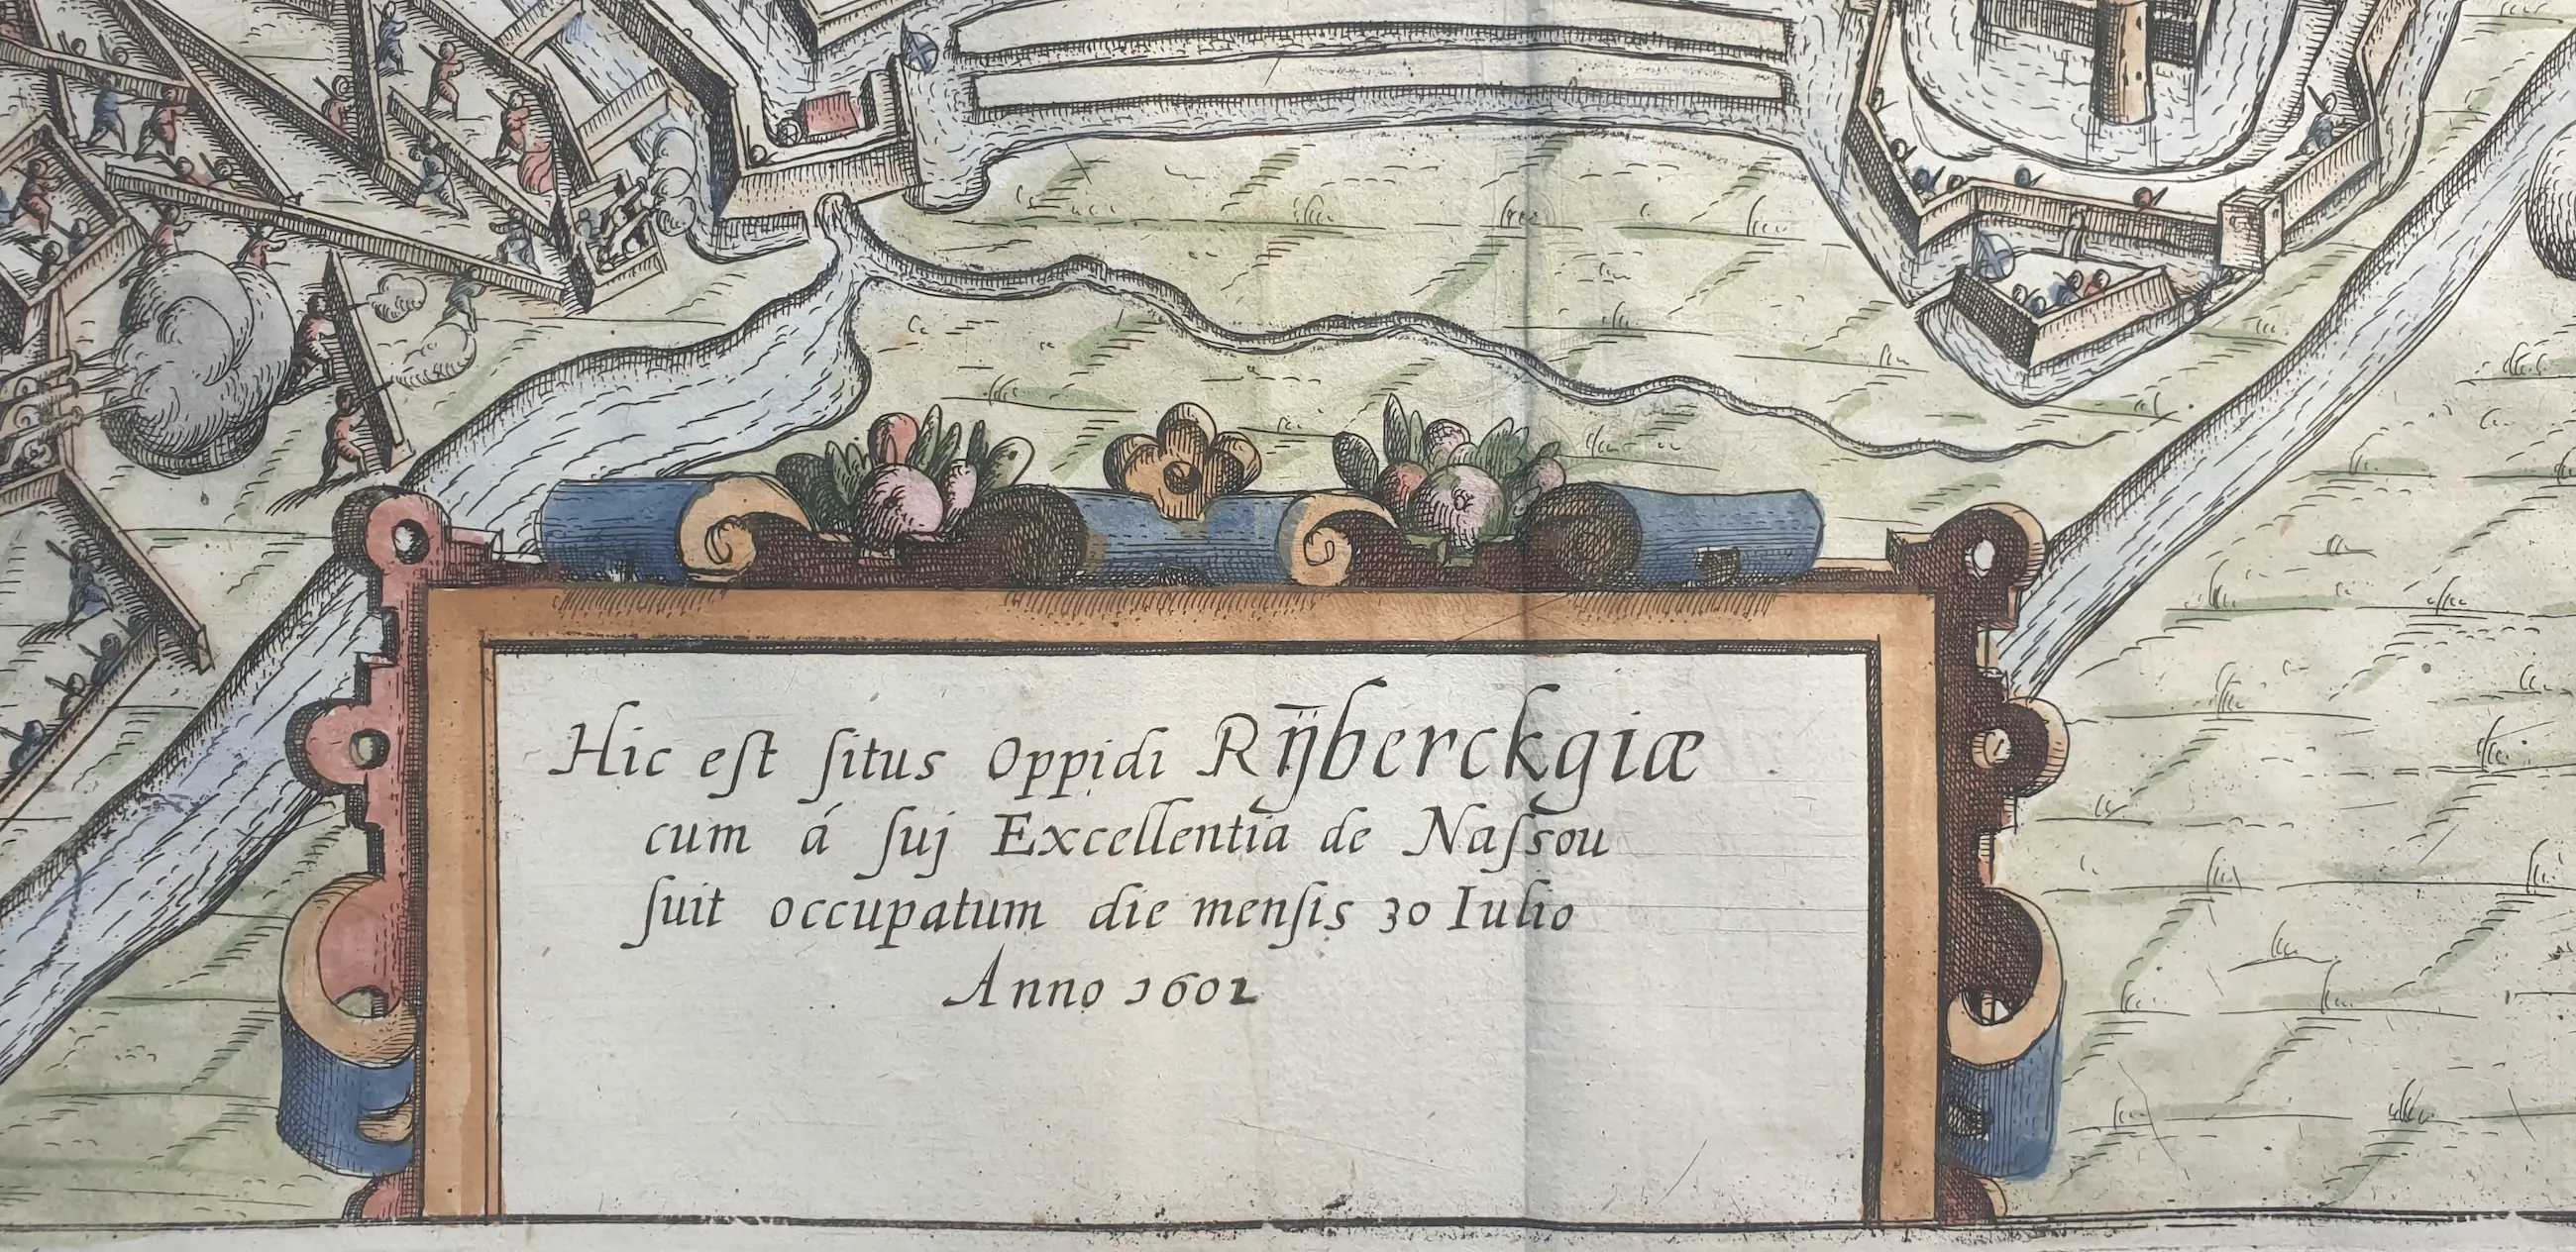 Hic eſt ſitus Oppidi Rij̄berckgiæ
cum á ſuj Excellentia de Naſsou
ſuit occupatum die menſis 30 Iulio
Anno 1601